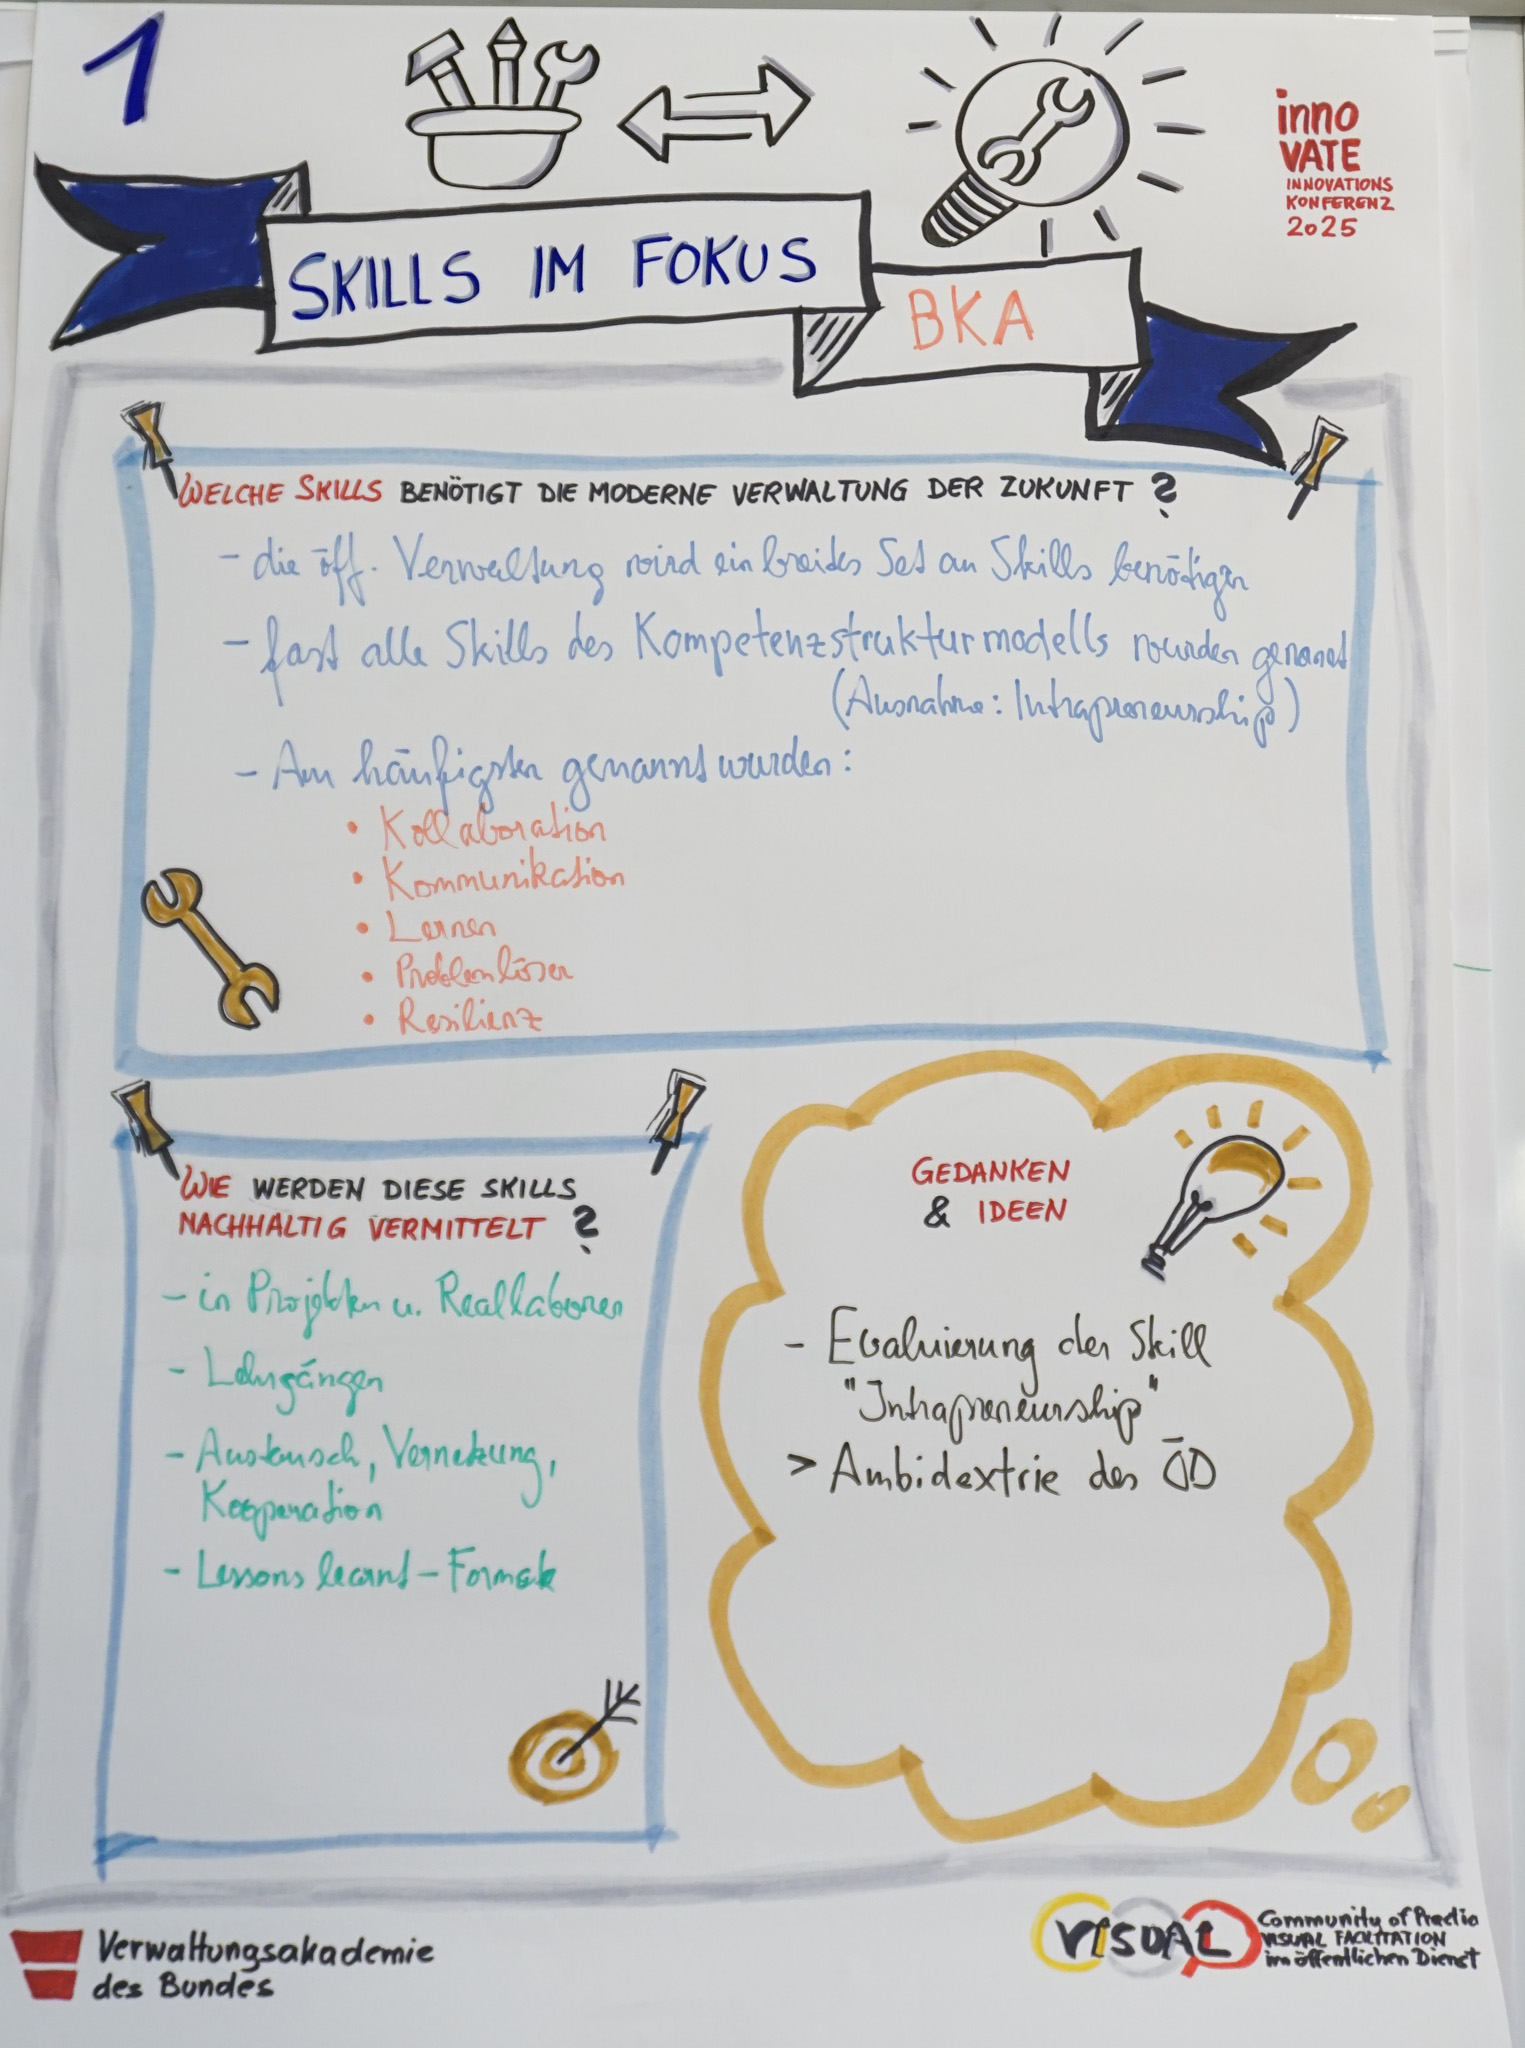 1
inno
VATE
INNOVATIONS
KONFERENZ
2025
SKILLS IM FOKUS
BKA
WELCHE SKILLS BENÖTIGT DIE MODERNE VERWALTUNG DER ZUKUNFT ?
- die öff. Verwaltung wird ein breites Set an Skills benötigen
- fast alle Skills des Kompetenzstrukturmodells wurden genannt
(Ausnahme: Intrapreneurship)
- Am häufigsten genannt wurden:
• Kollaboration
• Kommunikation
• Lernen
• Problemlösen
• Resilienz
WIE WERDEN DIESE SKILLS
NACHHALTIG VERMITTELT ?
- in Projekten u. Reallaboren
- Lehrgängen
- Austausch, Vernetzung,
Kooperation
- Lessons learnt - Formate
GEDANKEN
& IDEEN
- Evaluierung der Skill
"Intrapreneurship"
> Ambidextrie des ÖD
Verwaltungsakademie
des Bundes
VISUAL
Community of Practice
VISUAL FACILITATION
im öffentlichen Dienst